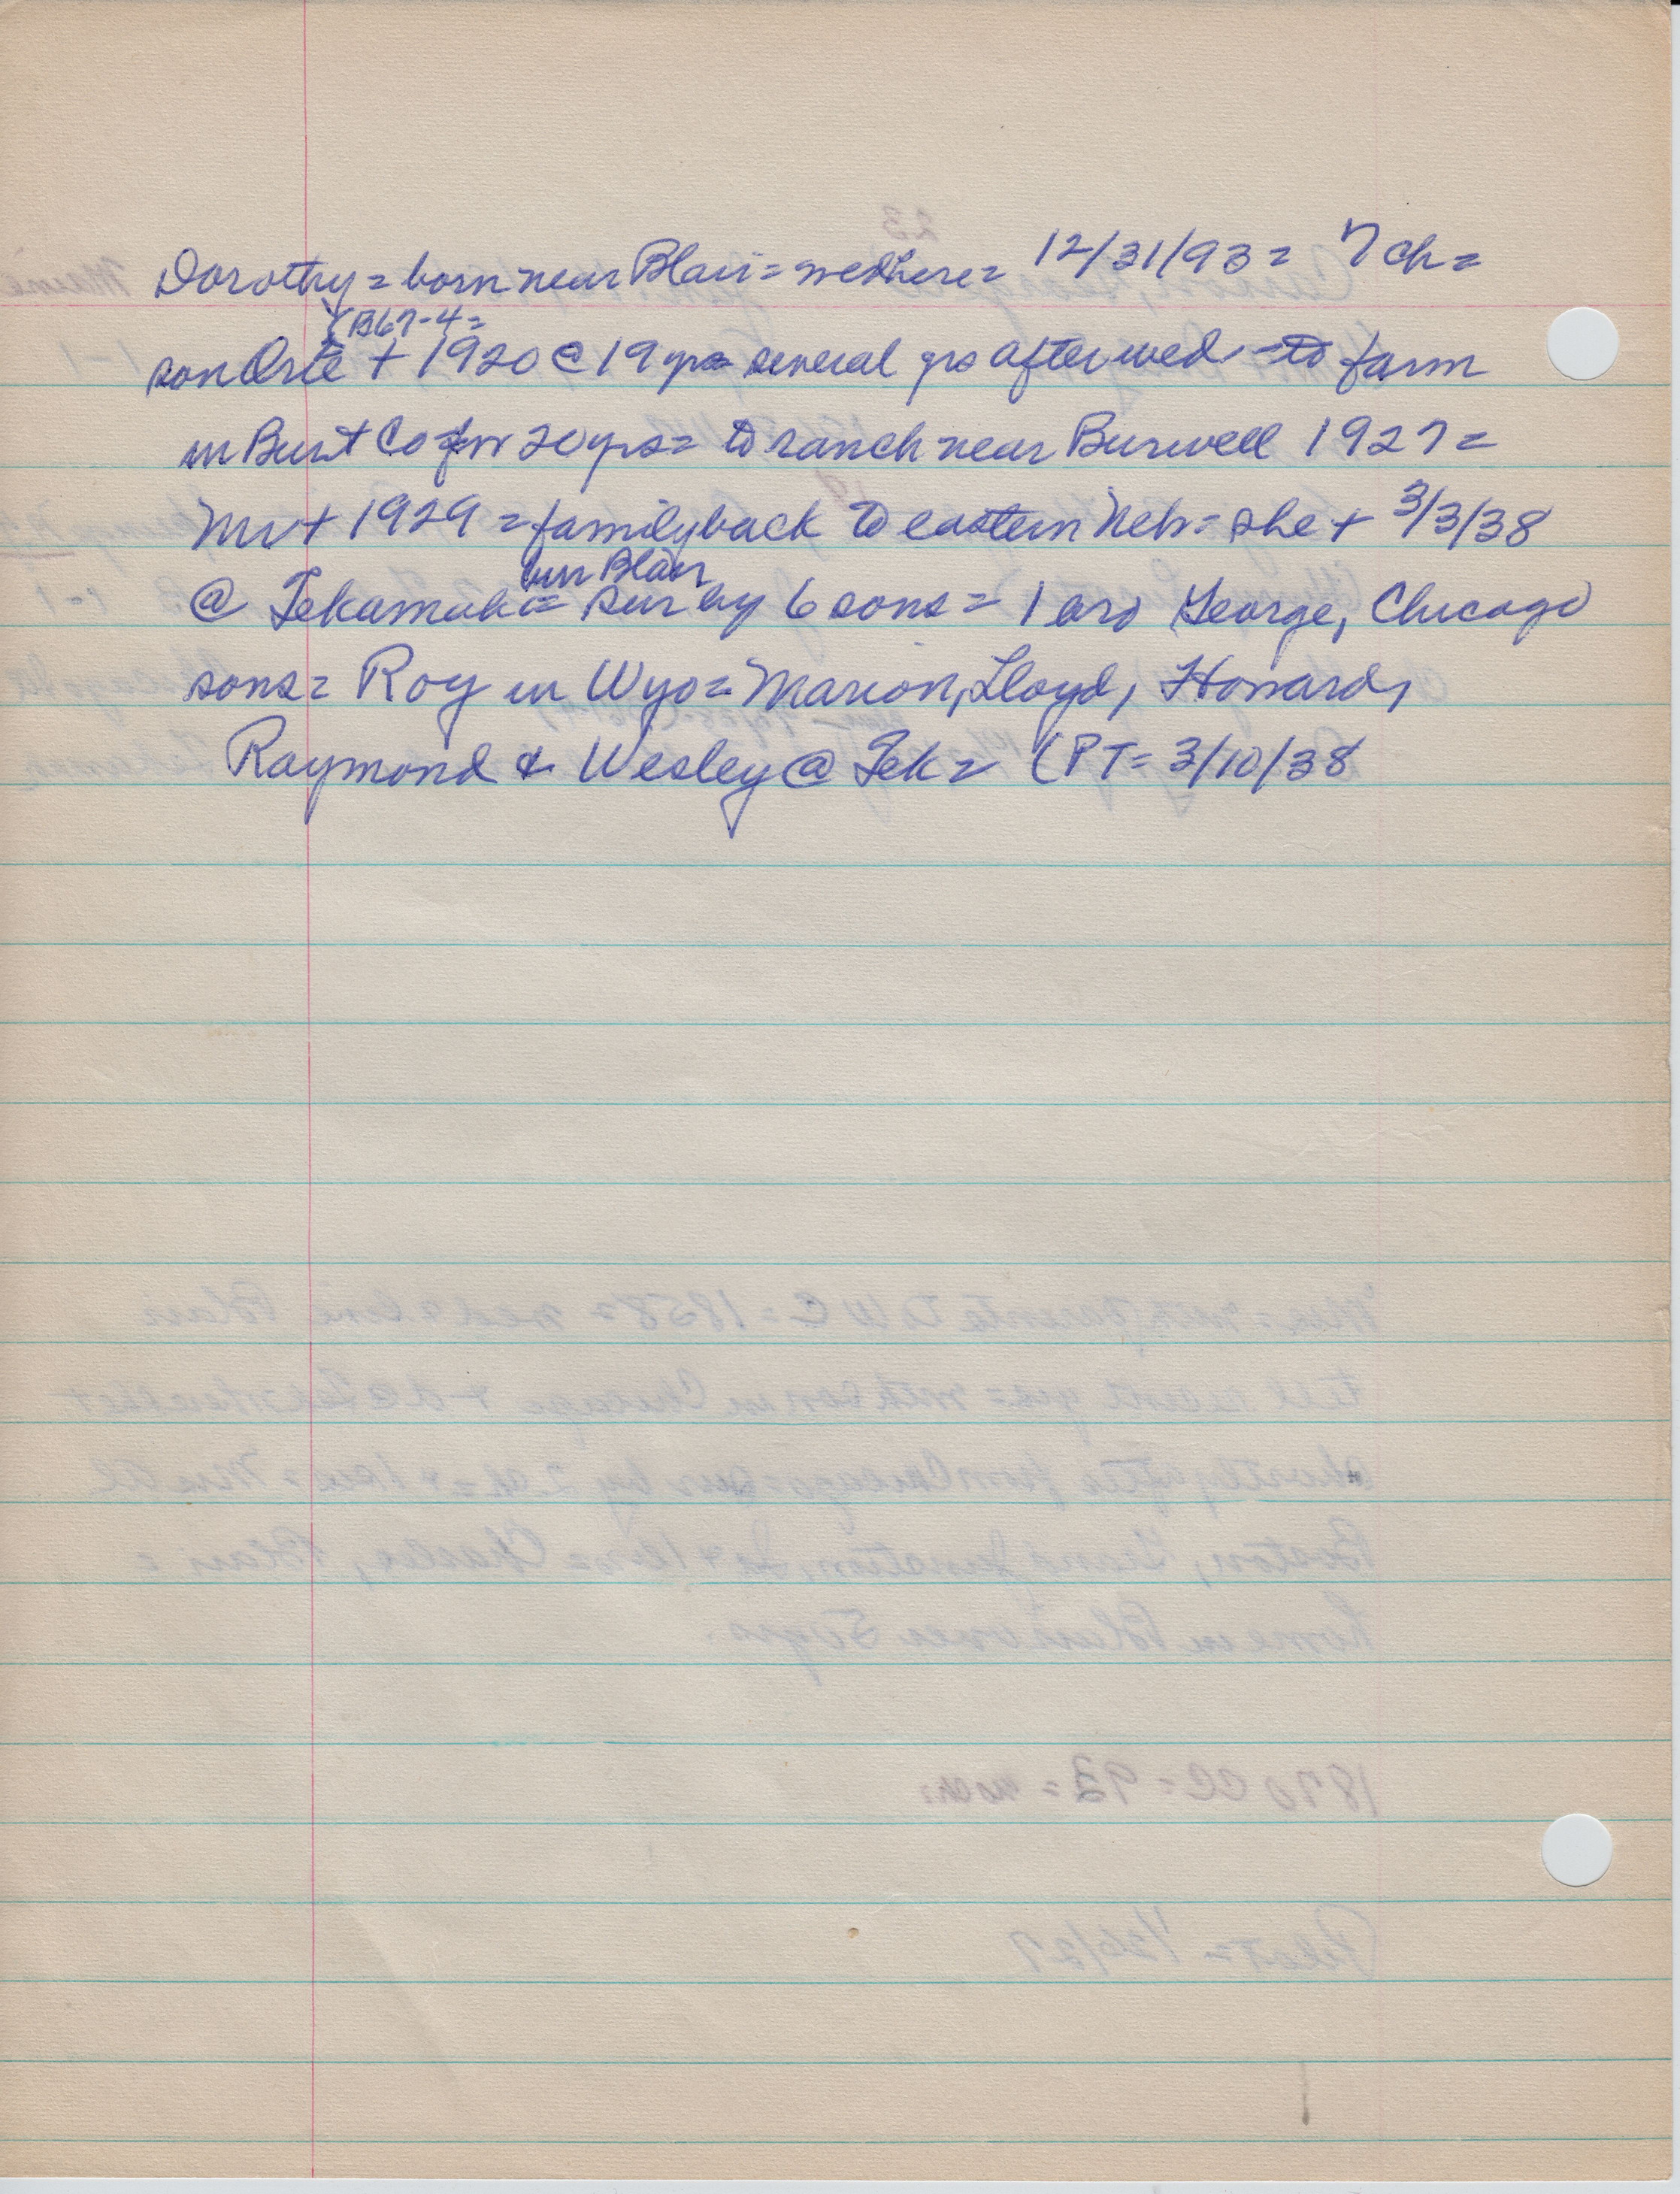 Dorothy = born near Blair = wed here = 12/31/93 = 7 ch =
(B67-4 =
son Orie + 1920 @ 19 yrs = several yrs after wed to farm
in Burt Co for 20 yrs = to ranch near Burwell 1927 =
Mr + 1929 = family back to eastern Neb = she + 3/3/38
bur Blair
@ Tekamah = sur by 6 sons = 1 bro George, Chicago
sons = Roy in Wyo = Marion, Lloyd, Howard,
Raymond & Wesley @ Tek = (PT = 3/10/38